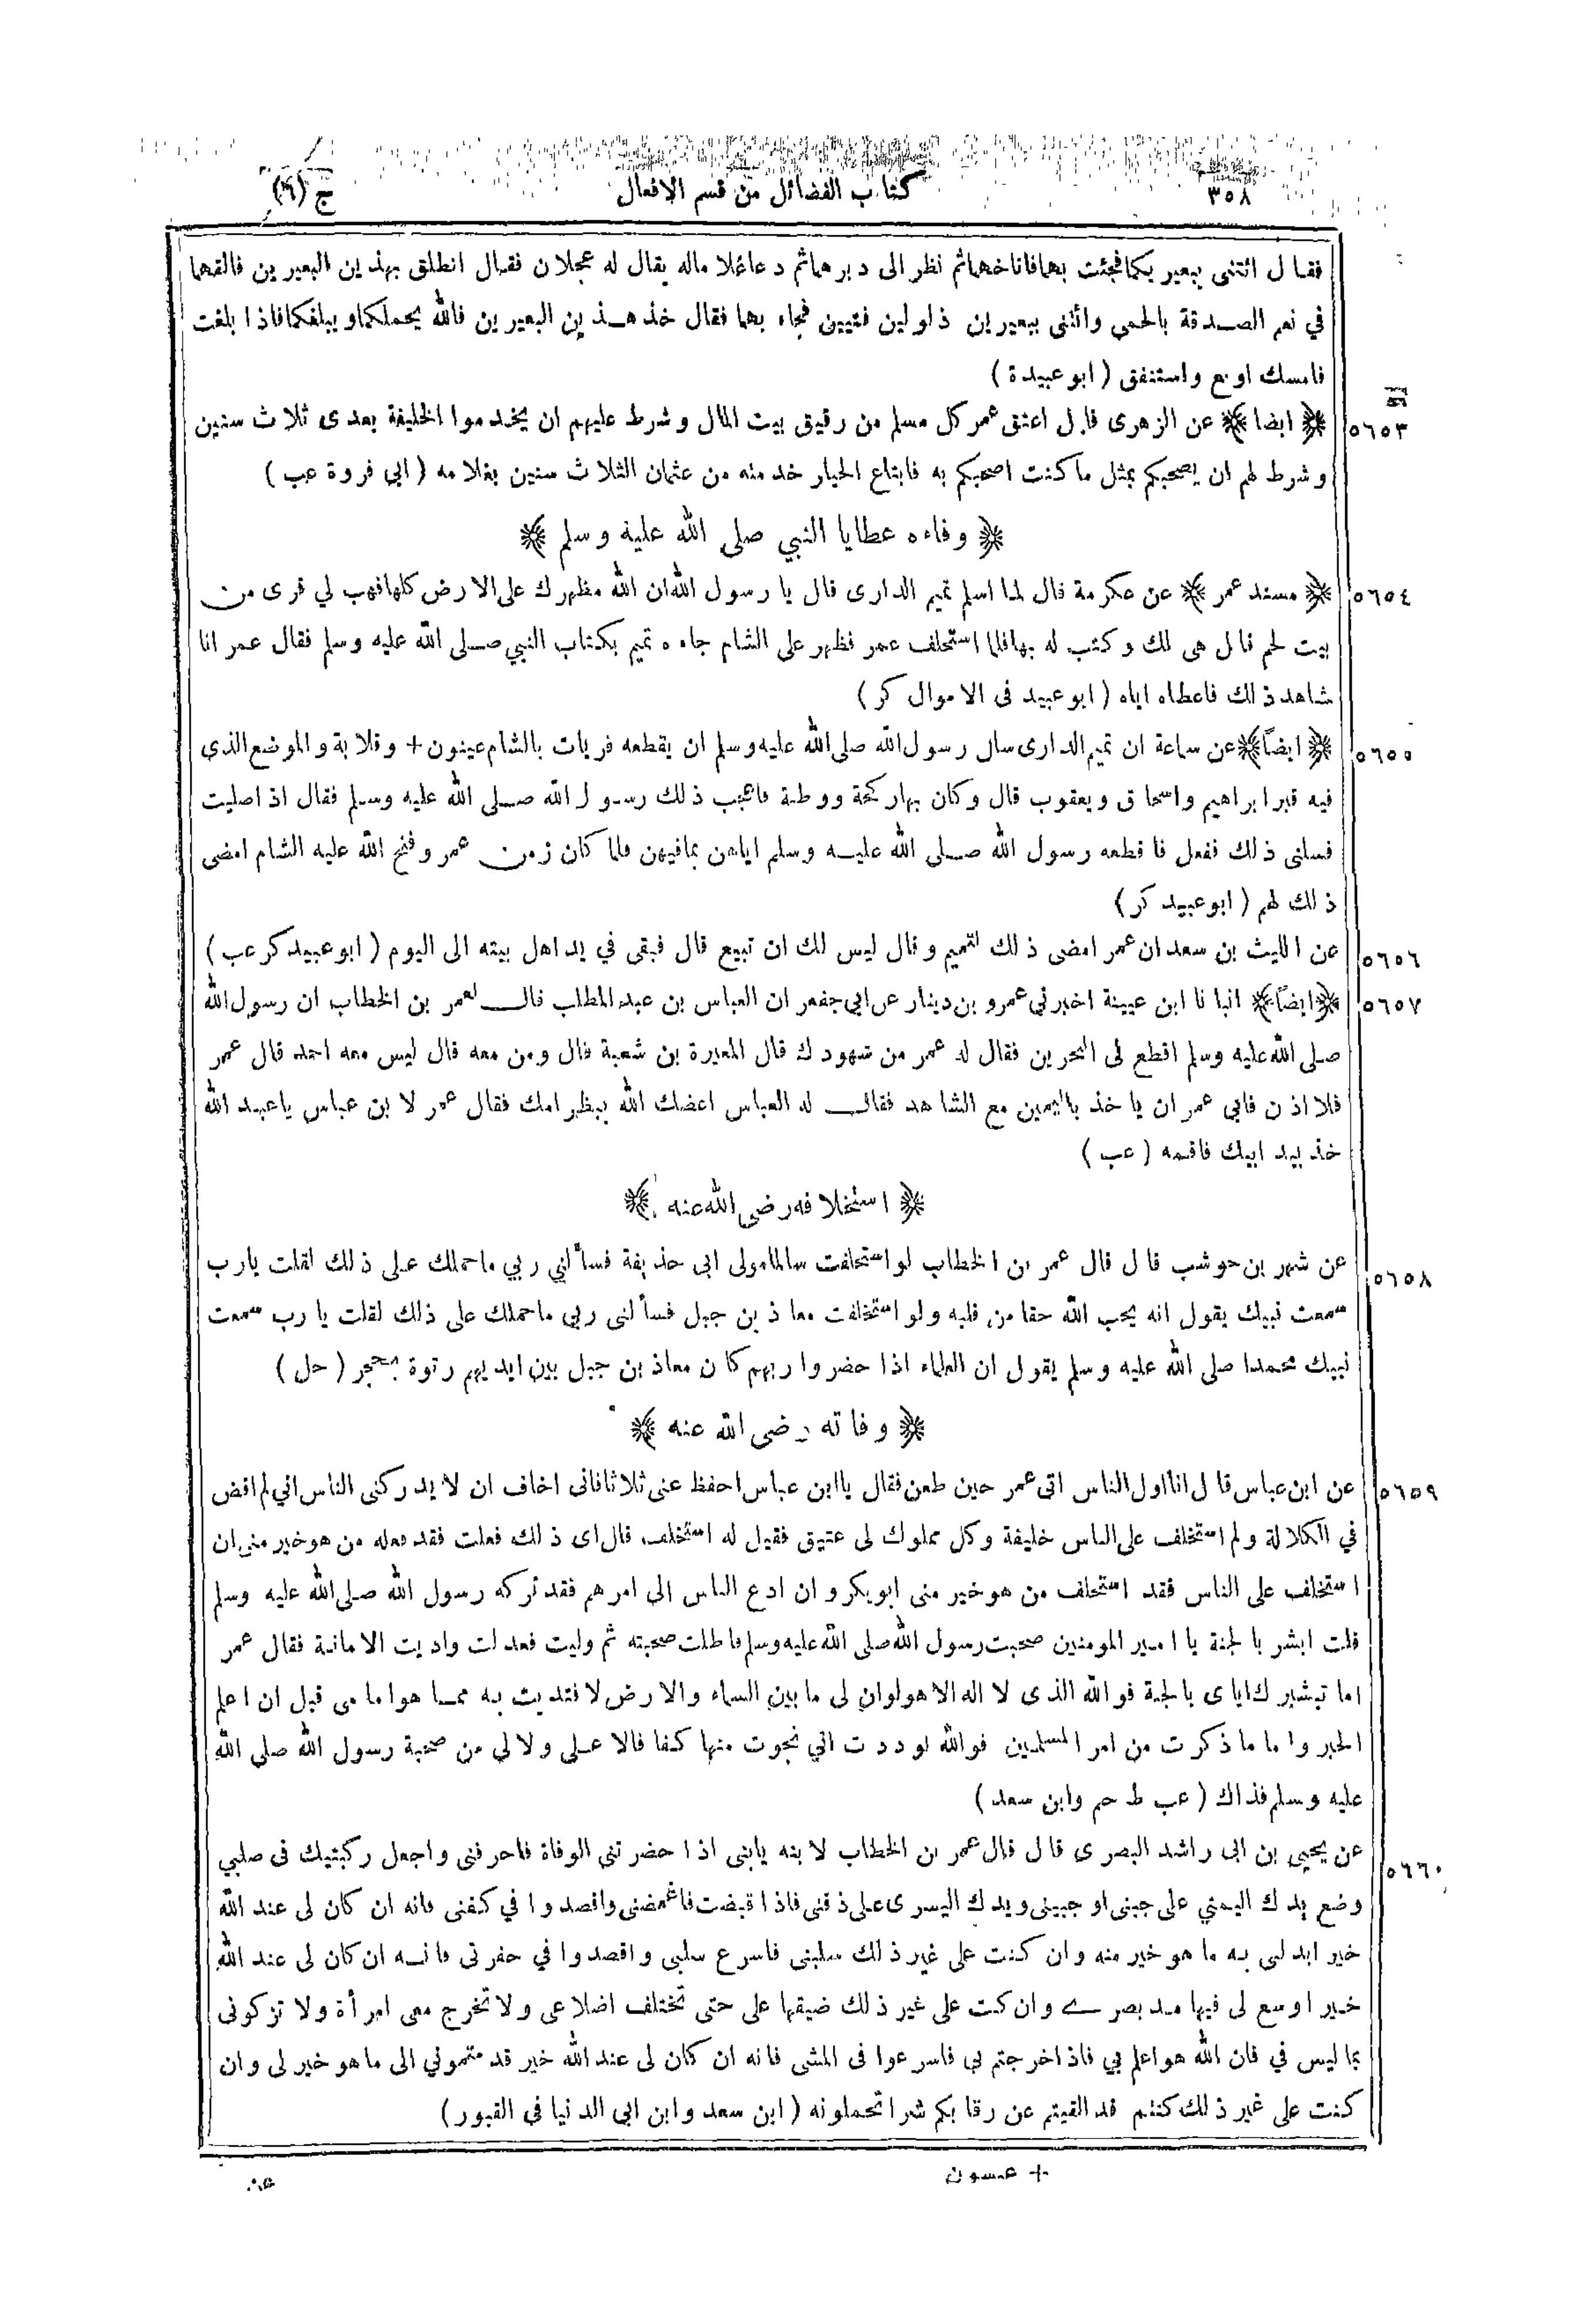 ٣٥٨ كتاب الفضائل من قسم الافعال ج (٦)
فقال ائتنى ببعير يكما فجئت بهما فاناخهما ثم نظر الى د بر هما ثم د عا غلا ماله يقال له عجلان فقال انطلق بهذين البعيرين فالقهما
في نعم الصدقة بالحمى وائتنى ببعيرين ذلولين فتيين فجاء بهما فقال خذ هذين البعيرين فالله يحملكما ويبلغكما فاذا بلغت
فامسك او بع واستنفق ( ابوعبيدة )
٥٦٥٣ ﴿ ايضا ﴾ عن الزهرى قال اعتق عمر كل مسلم من رقيق بيت المال وشرط عليهم ان يخدموا الخليفة بعدى ثلاث سنين
وشرط لهم ان يصحبكم بمثل ما كنت اصحبكم به فابتاع الخيار خد مته من عثمان الثلاث سنين بغلا مه ( ابى فروة عب )
﴿ وفاءه عطايا النبي صلى الله عليه وسلم ﴾
٥٦٥٤ ﴿ مسند عمر ﴾ عن عكرمة قال لما اسلم تميم الدارى قال يا رسول الله ان الله مظهرك على الارض كلها فهب لي قرى من
بيت لحم قال هى لك وكتب له بها فلما استخلف عمر فظهر على الشام جاءه تميم بكتاب النبي صلى الله عليه وسلم فقال عمر انا
شاهد ذلك فاعطاه اياه ( ابوعبيد فى الاموال كر )
٥٦٥٥ ﴿ ايضاً ﴾ عن سماعة ان تميم الدارى سال رسول الله صلى الله عليه وسلم ان يقطعه قريات بالشام عينون + وقلابة والموضع الذى
فيه قبر ابراهيم واسحاق ويعقوب قال وكان بها ركحة ووطنة فاعجب ذلك رسول الله صلى الله عليه وسلم فقال اذا صليت
فسلنى ذلك ففعل فاقطعه رسول الله صلى الله عليه وسلم اياهن بمافيهن فلما كان زمن عمر وفتح الله عليه الشام امضى
ذلك لهم ( ابوعبيد كر )
٥٦٥٦ عن الليث بن سعد ان عمر امضى ذلك لتميم وقال ليس لك ان تبيع قال فبقى في يد اهل بيته الى اليوم ( ابوعبيد كر عب )
٥٦٥٧ ﴿ ايضاً ﴾ انبانا ابن عيينة اخبرني عمرو بن دينار عن ابى جعفر ان العباس بن عبد المطلب قال لعمر بن الخطاب ان رسول الله
صلى الله عليه وسلم اقطع لى البحرين فقال له عمر من شهودك قال المغيرة بن شعبة قال ومن معه قال ليس معه احد قال عمر
فلا اذن فابى عمر ان ياخذ باليمين مع الشاهد فقال له العباس اعضك الله ببظر امك فقال عمر لابن عباس ياعبد الله
خذ بيد ابيك فاقمه ( عب )
﴿ استخلافه رضى الله عنه ﴾
٥٦٥٨ عن شهر بن حوشب قال قال عمر بن الخطاب لو استخلفت سالما مولى ابى حذيفة فسألني ربي ما حملك على ذلك لقلت يارب
سمعت نبيك يقول انه يحب الله حقا من قلبه ولو استخلفت معاذ بن جبل فسألنى ربي ما حملك على ذلك لقلت يا رب سمعت
نبيك محمدا صلى الله عليه وسلم يقول ان العلماء اذا حضروا ربهم كان معاذ بن جبل بين ايديهم رتوة بحجر ( حل )
﴿ وفاته رضى الله عنه ﴾
٥٦٥٩ عن ابن عباس قال انا اول الناس اتى عمر حين طعن فقال يا ابن عباس احفظ عنى ثلاثا فانى اخاف ان لا يدركنى الناس اني لم اقض
في الكلالة ولم استخلف على الناس خليفة وكل مملوك لى عتيق فقيل له استخلف قال اى ذلك فعلت فقد فعله من هو خير منى ان
استخلف على الناس فقد استخلف من هو خير منى ابو بكر وان ادع الناس الى امرهم فقد تركه رسول الله صلى الله عليه وسلم
قلت ابشر بالجنة يا امير المومنين صحبت رسول الله صلى الله عليه وسلم فاطلت صحبته ثم وليت فعدلت واديت الامانة فقال عمر
اما تبشيرك اياى بالجنة فوالله الذى لا اله الا هو لو ان لى ما بين السماء والارض لافتديت به مما هو امامى قبل ان اعلم
الخبر واما ما ذكرت من امر المسلمين فوالله لوددت اني نجوت منها كفافا لا على ولا لي واما ما ذكرت من صحبة رسول الله صلى الله
عليه وسلم فذاك ( عب ط حم وابن سعد )
٥٦٦٠ عن يحيى بن ابى راشد البصرى قال قال عمر بن الخطاب لابنه يابنى اذا حضرتنى الوفاة فاحرفنى واجعل ركبتيك فى صلبي
وضع يدك اليمني على جبنى او جبينى ويدك اليسرى على ذقنى فاذا قبضت فاغمضنى واقصدوا في كفنى فانه ان كان لى عند الله
خير ابدلنى به ما هو خير منه وان كنت على غير ذلك سلبنى فاسرع سلبى واقصدوا في حفرتى فانه ان كان لى عند الله
خير اوسع لى فيها مد بصرى وان كنت على غير ذلك ضيقها على حتى تختلف اضلاعى ولا تخرج معى امرأة ولا تزكونى
بما ليس في فان الله هو اعلم بي فاذا خرجتم بى فاسرعوا فى المشى فانه ان كان لى عند الله خير قد متمونى الى ما هو خير لى وان
كنت على غير ذلك كنتم قد القيتم عن رقابكم شرا تحملونه ( ابن سعد وابن ابى الدنيا في القبور )
+ عيسون
عن